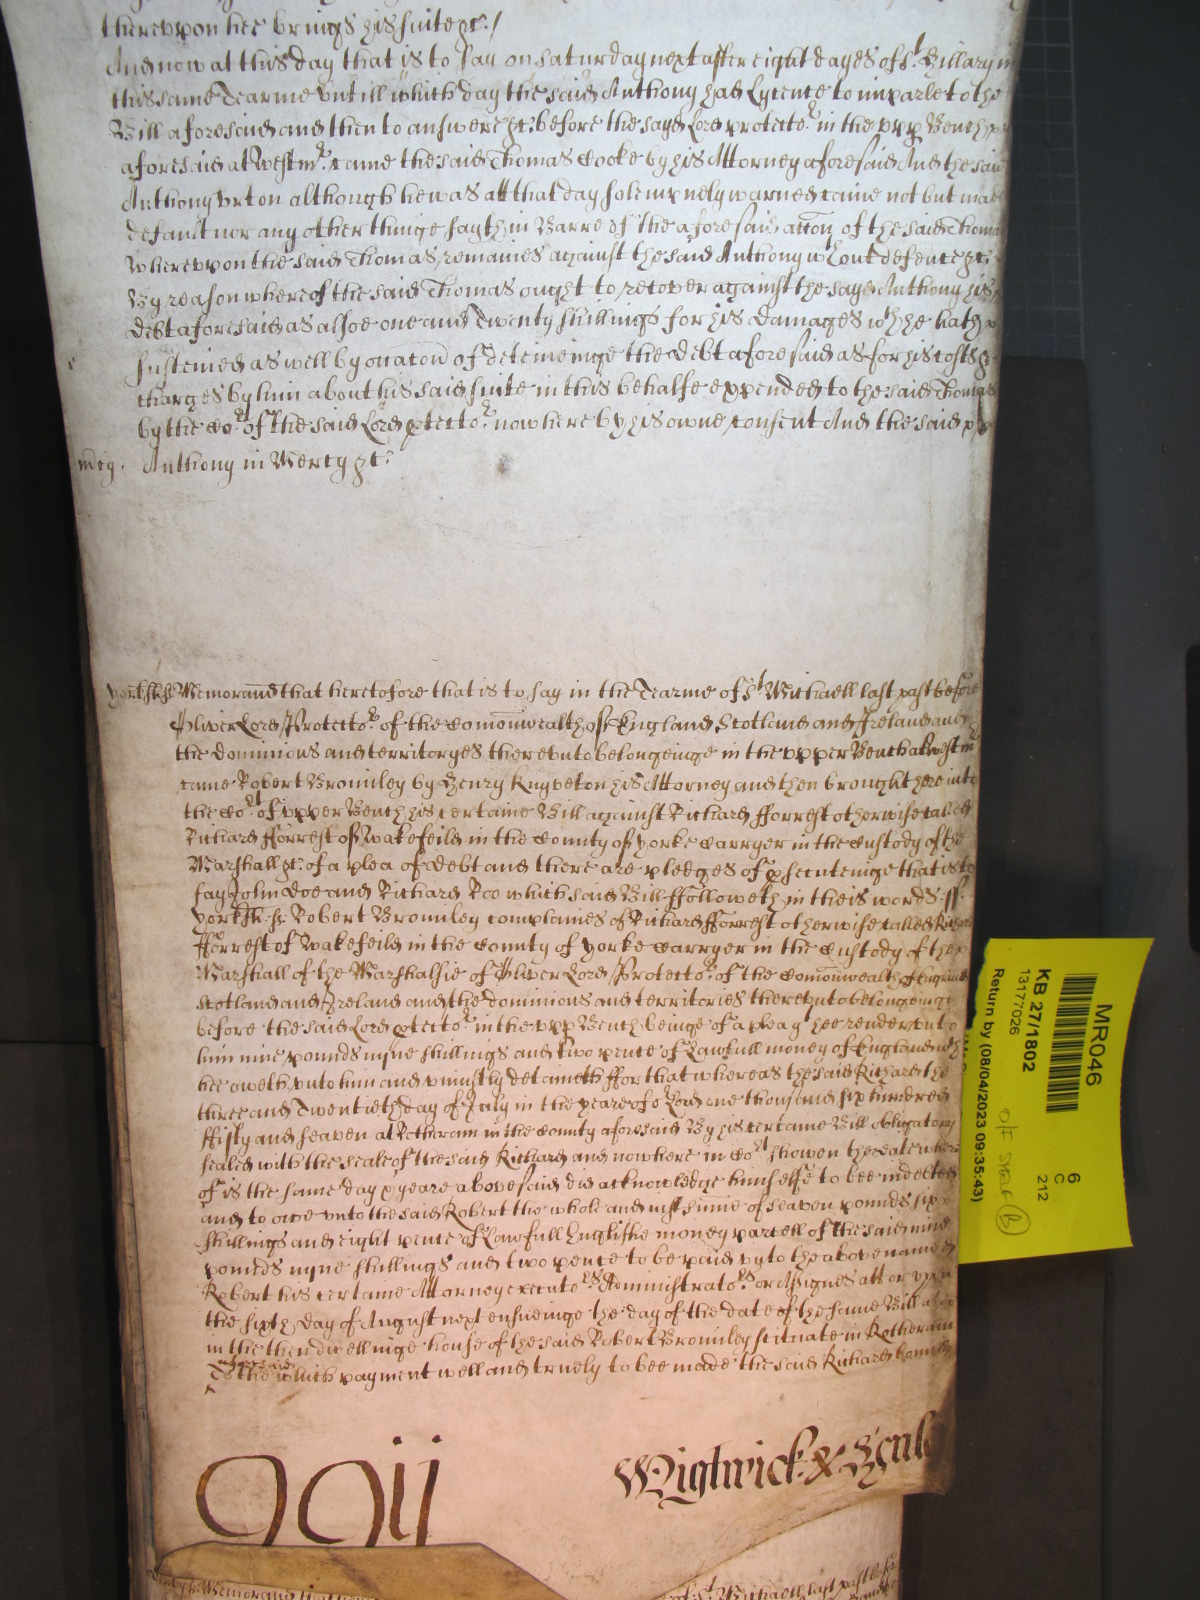 thereupon hee brings his suite &c./
And now at this day that is to say on Saturday next after eight dayes of St. Hillary in
this same Tearme untill which day the said Anthony had Lycence to imparle to the
Bill aforesaid and then to answere &c. before the sayd Lord protector in the upp Bench
aforesaid at Westmr. came the said Thomas Cooke by his Attorney aforesaid And the said
Anthony although he was att that day solempnely warned came not but made
default nor any other thinge sayth in Barre of the aforesaid accon of the said Thomas
Whereupon the said Thomas remaines against the said Anthony wthout defence &c.
By reason whereof the said Thomas ought to recover against the sayd Anthony his
debt aforesaid as alsoe one and Twenty shillings for his Damages wch he hath
susteined as well by occacon of deteineinge the debt aforesaid as for his costs &
charges by him about his said suite in this behalfe expended to the said Thomas
by the Cort of the said Lord ptector now here by his owne consent And the said
mcy. Anthony in Mercy &c.
Yorksh: ss Memorand that heretofore that is to say in the Tearme of St. Michaell last past before
Oliver Lord Protector of the Comonwealth of England Scotland and Ireland and
the dominions and territoryes thereunto belongeinge in the upper Bench at Westmr
came Robert Bromley by Henry Knyveton his Attorney and then brought here into
the Cort of upper Bench his certaine Bill against Richard fforrest otherwise called
Richard fforrest of Wakefeild in the County of Yorke Carryer in the Custody of the
Marshall &c. of a plea of debt and there are pledges of psecuteinge that is to
say John Doe and Richard Roo which said Bill ffolloweth in theis words ss.
Yorksh. ss Robert Bromley complaines of Richard fforrest otherwise called Richard
fforrest of Wakefeild in the County of Yorke Carryer in the Custody of the
Marshall of the Marshalsie of Oliver Lord Protector of the Comonwealth of England
Scotland and Ireland and the dominions and territories thereunto belongeinge
before the said Lord ptector in the upp Bench beinge of a plea that hee render unto
him nine pounds nyne shillings and two pence of Lawfull money of England wch
hee oweth unto him and uniustly detaineth ffor that whereas the said Richard the
three and Twentieth day of July in the yeare of or Lord one thousand six hundred
ffifty and seaven at Rotheram in the County aforesaid By his certaine Bill obligatory
sealed with the seale of the said Richard and now here in Cort showen the date where
of is the same day & yeare abovesaid did acknowledge himselfe to bee indebted
and to owe unto the said Robert the whole and iust sume of seaven pounds six
shillings and eight pence of Lawfull Englishe money parcell of the said nine
pounds nyne shillings and two pence to be paid unto the abovenamed
Robert his certaine Attorney executors Administrators or Assignes att or upon
the sixth day of August next ensueinge the day of the date of the same Bill att
in the then dwellinge house of the said Robert Bromley scituate in Rotheram
aforesaid
To the which payment well and truely to bee made the said Richard
Wightwick &
Memorand
St. Michaell last past before
MR046
KB 27/1802
13177026
Return by (08/04/2023 09:35:43)
6
C
212
B